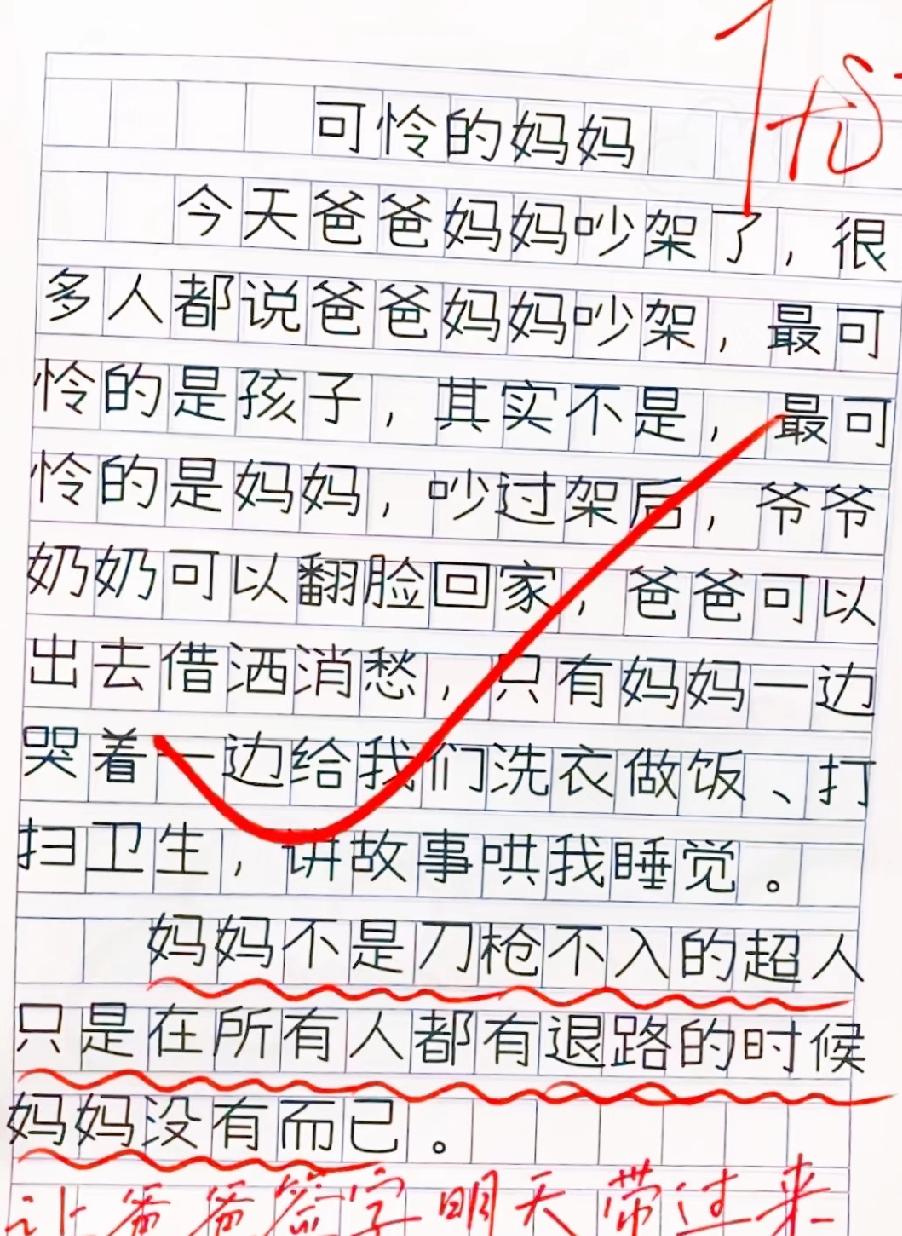 优
可怜的妈妈
今天爸爸妈妈吵架了，很
多人都说爸爸妈妈吵架，最可
怜的是孩子，其实不是，最可
怜的是妈妈，吵过架后，爷爷
奶奶可以翻脸回家，爸爸可以
出去借洒消愁，只有妈妈一边
哭着一边给我们洗衣做饭、打
扫卫生，讲故事哄我睡觉。
妈妈不是刀枪不入的超人
只是在所有人都有退路的时候
妈妈没有而已。
让爸爸签字明天带过来